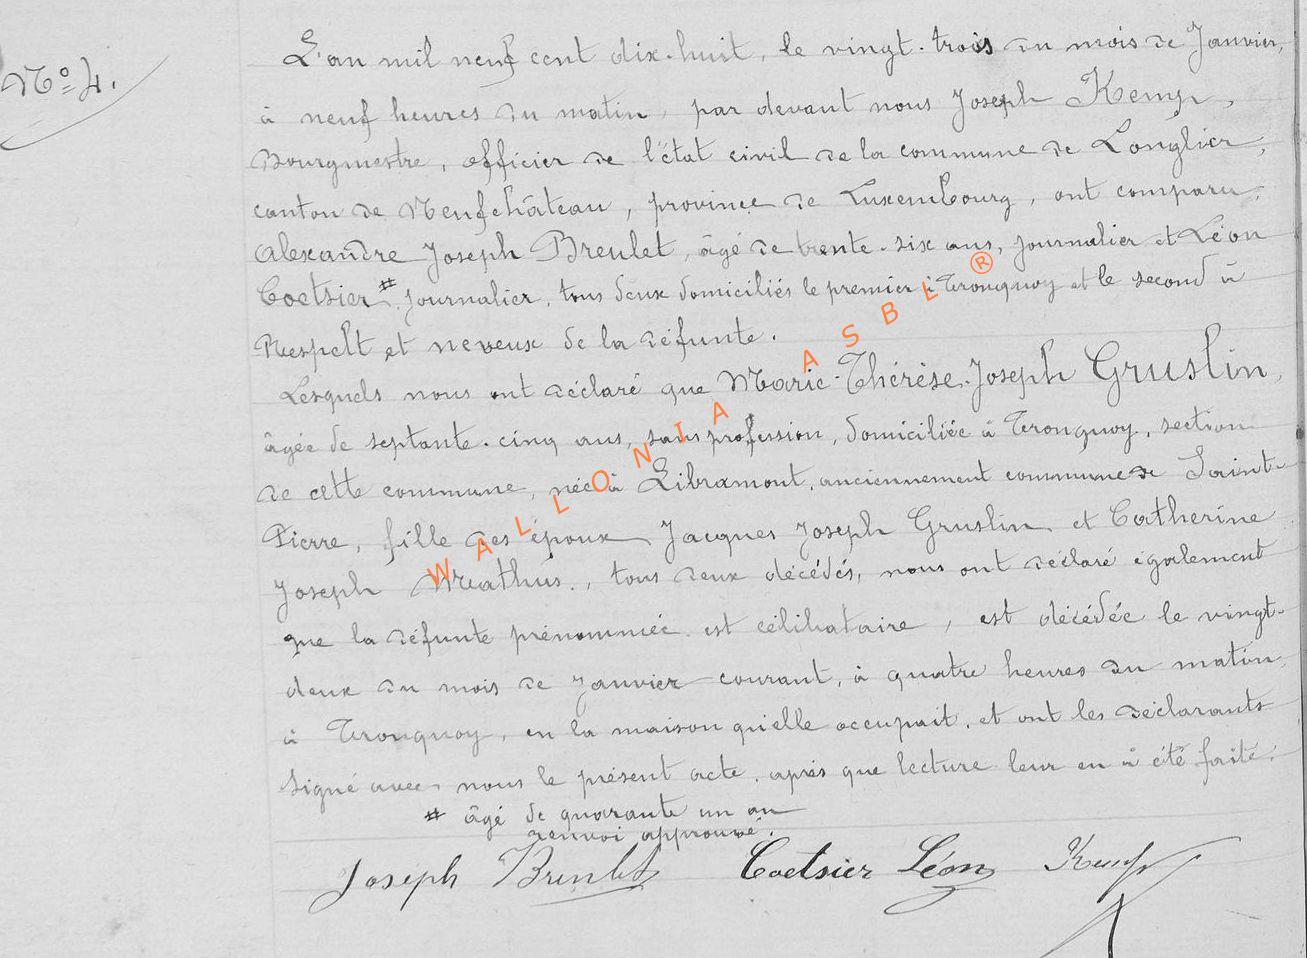 Nº 4.
L'an mil neuf cent dix-huit, le vingt-trois du mois de Janvier,
à neuf heures du matin, par devant nous Joseph Kemp,
Bourgmestre, officier de l'état civil de la commune de Longlier,
canton de Neufchâteau, province de Luxembourg, ont comparu,
Alexandre Joseph Breulet, âgé de trente-six ans, journalier et Léon
Coetsier #, journalier, tous deux domiciliés le premier à Tronquoy et le second à
Respelt et neveux de la défunte.
Lesquels nous ont déclaré que Marie-Thérèse-Joseph Gruslin,
âgée de septante-cinq ans, sans profession, domiciliée à Tronquoy, section
de cette commune, née à Libramont, anciennement commune de Saint-
Pierre, fille des époux Jacques Joseph Gruslin et Catherine
Joseph, tous deux décédés, nous ont déclaré également
que la défunte prénommée est célibataire, est décédée le vingt-
deux du mois de Janvier courant, à quatre heures du matin,
à Tronquoy, en la maison qu'elle occupait, et ont les déclarants
signé avec nous le présent acte, après que lecture leur en à été faite.
# âgé de quarante un an
renvoi approuvé.
Joseph Breulet Coetsier Léon Kemp
WALLONIA ASBL ®